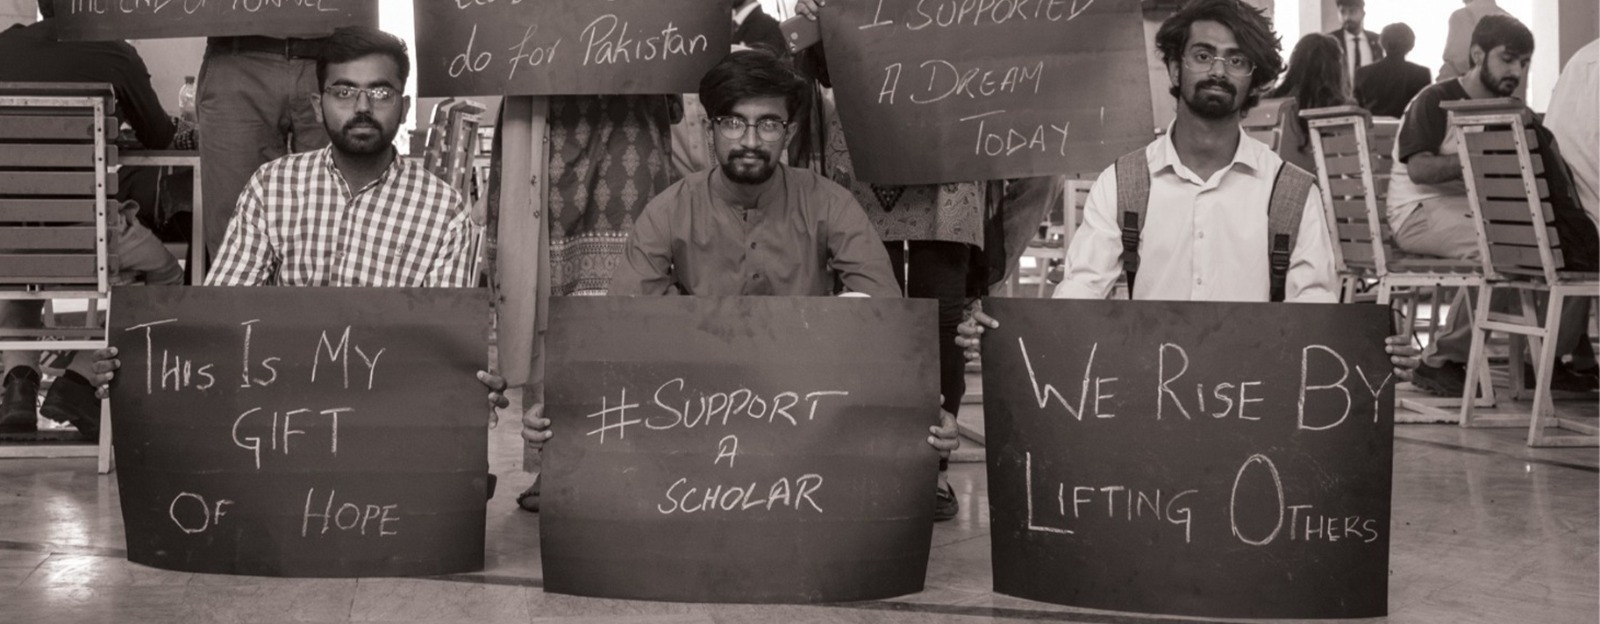 THE END OF TUNNEL
do for Pakistan
I SUPPORTED
A DREAM
TODAY !
THIS IS MY
GIFT
OF HOPE
#SUPPORT
A
SCHOLAR
WE RISE BY
LIFTING OTHERS